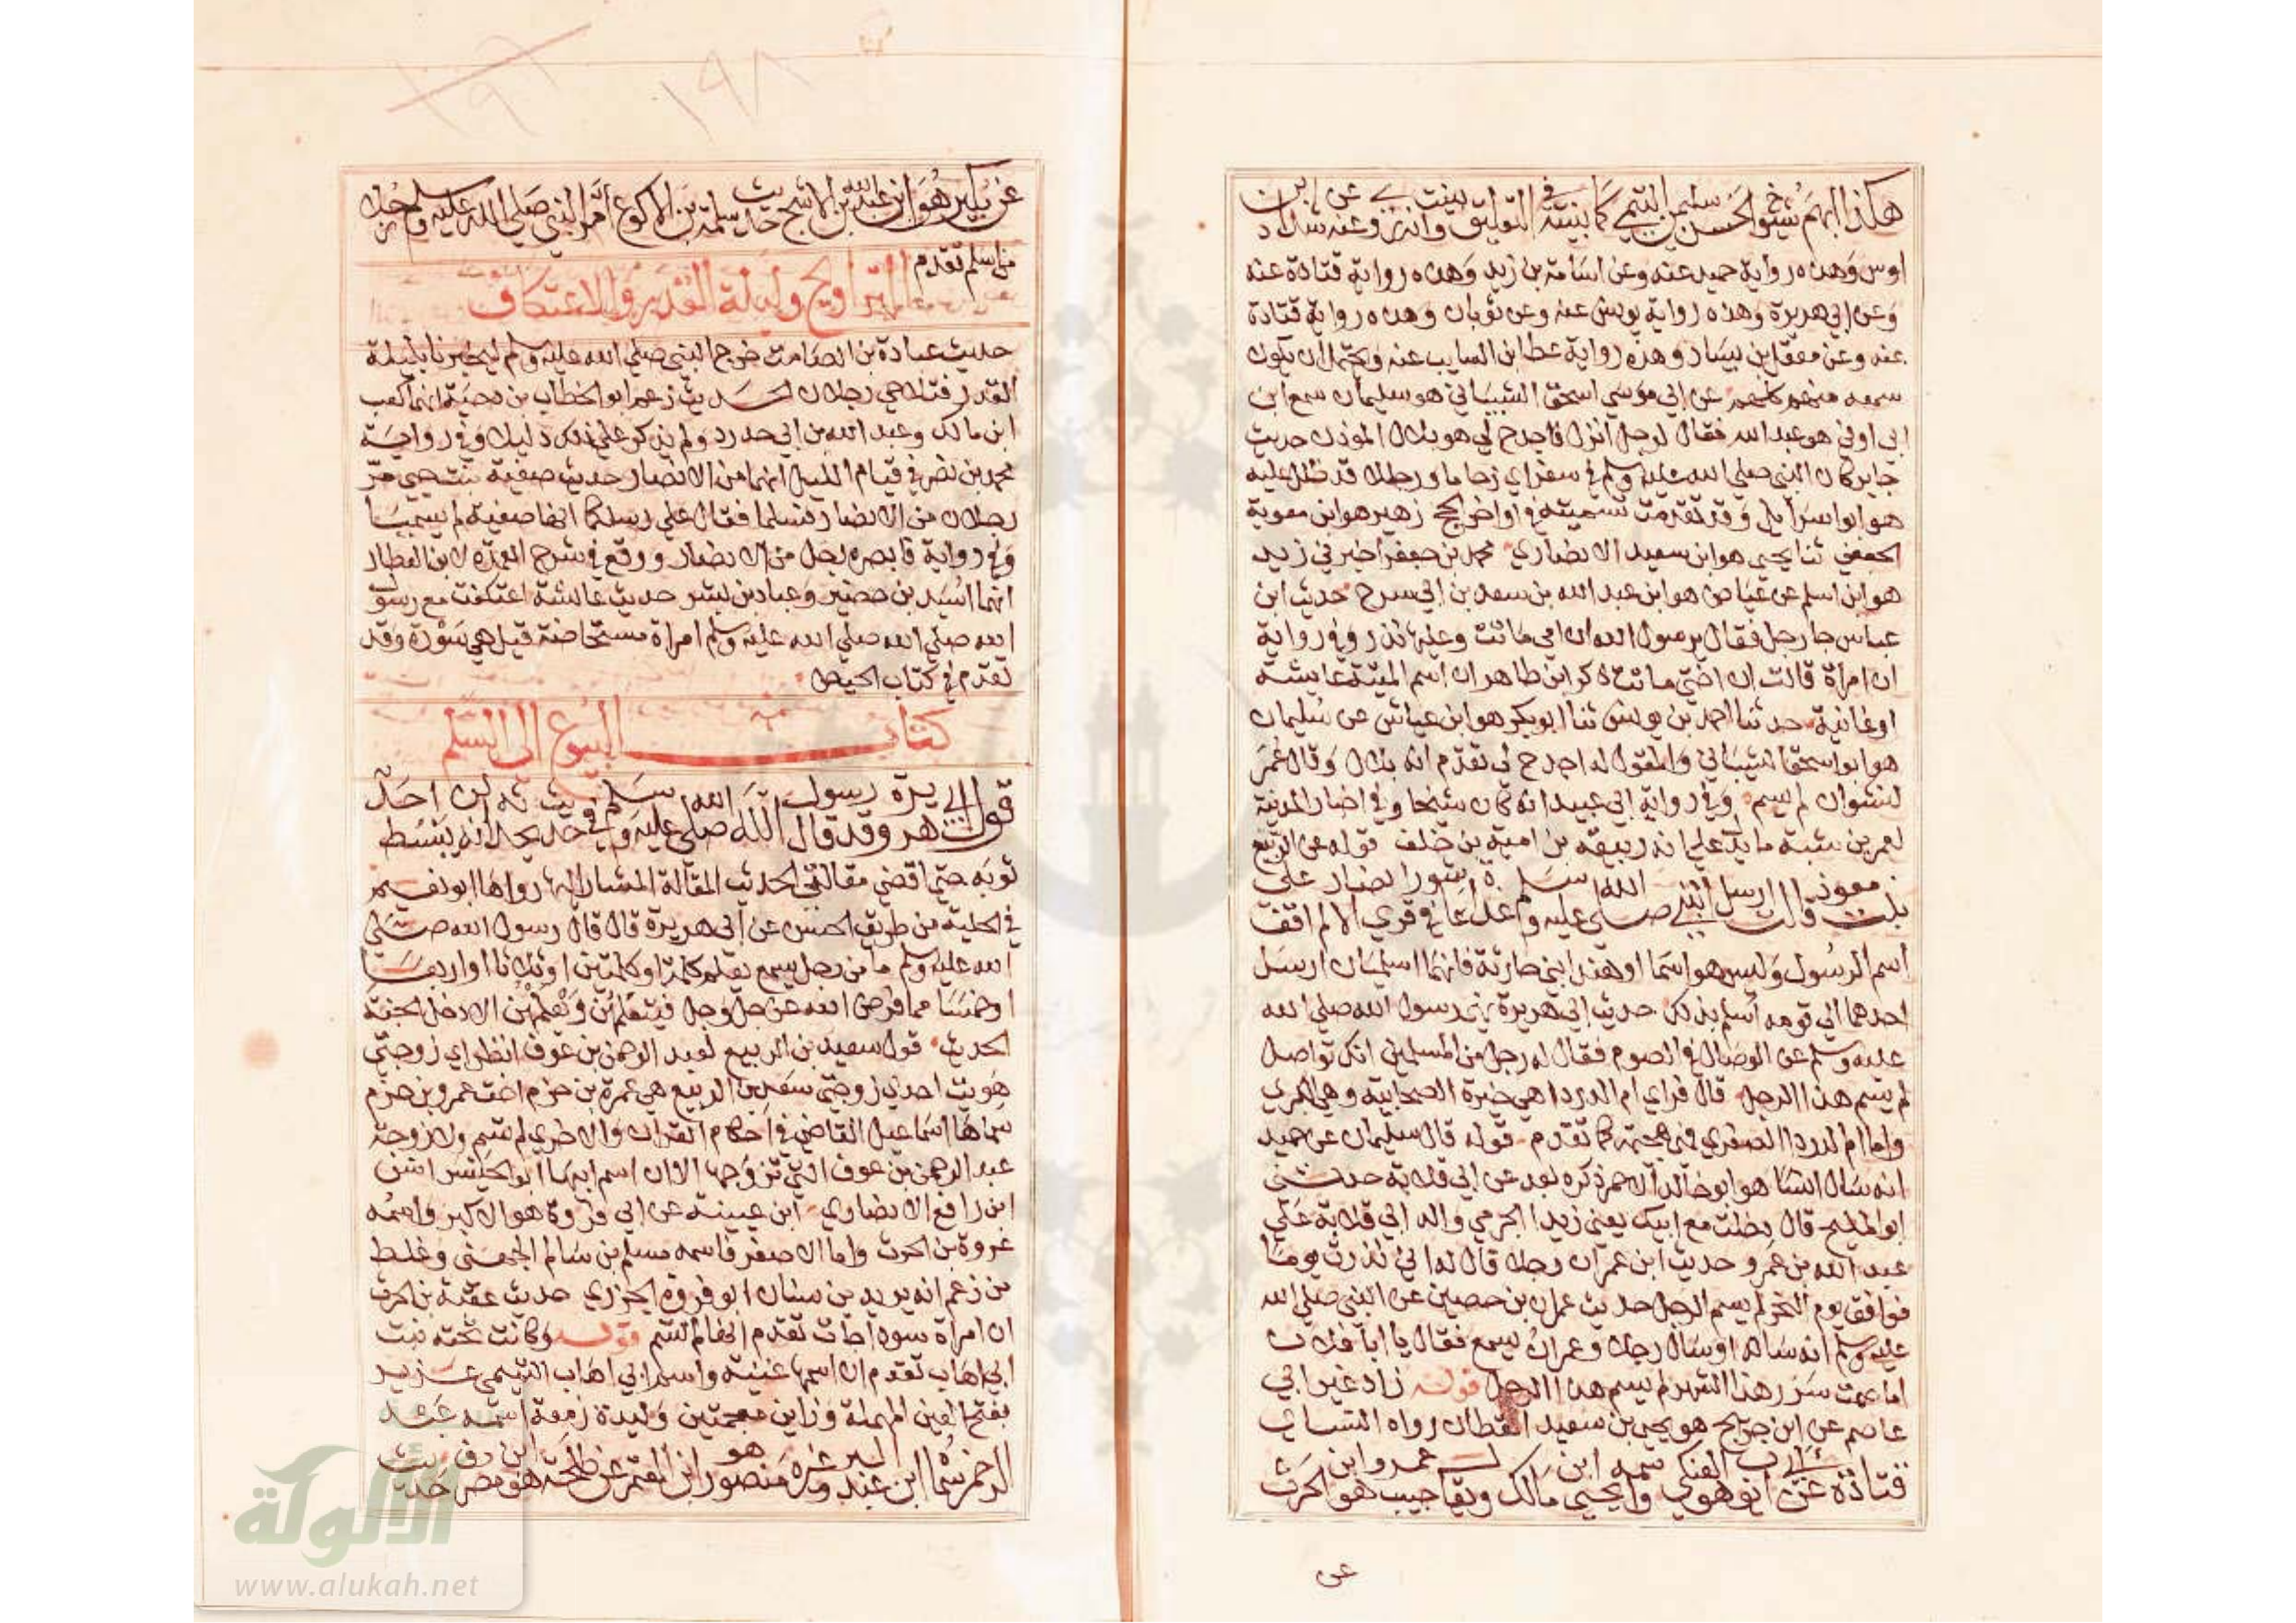 هكذا ابهم شيوخ الحسن سليمن التيمي كما بينته في التعليق وانه روي عنه عن شداد بن
اوس وهذه رواية حميد عنه وعن اسامة بن زيد وهذه رواية قتادة عنه
وعن ابي هريرة وهذه رواية يونس عنه وعن ثوبان وهذه رواية قتادة
عنه وعن معقل بن يسار وهذه رواية عطا ابن السايب عنه ويحتمل ان يكون
سمعه منهم كلهم عن ابي موسي اسحق الشيباني هو سليمان سمع ابن
ابي اوفي هو عبد الله فقال لرجل انزل فاجدح لي هو بلال الموذن حديث
جابر كان النبي صلي الله عليه وسلم في سفر راي زحاما ورجلا قد ظلل عليه
هو ابو اسرايل وقد تقدمت تسميته في اواخر الحج زهير هو ابن معوية
الجعفي ثنا يحيي هو ابن سعيد الانصاري محمد بن جعفر اخبرني زيد
هو ابن اسلم عن عياض هو ابن عبد الله بن سعد بن ابي سرح حديث ابن
عباس جا رجل فقال يرسول الله ان امي ماتت وعليها نذر وفي رواية
ان امراة قالت ان اختي ماتت ذكر ابن طاهر ان اسم الميتة عايشة
او غانية حدثنا احمد بن يونس ثنا ابو بكر هو ابن عياش عن سليمان
هو ابو اسحق الشيباني والمقول له اجدح لي تقدم انه بلال وقال عمر
لنشوان لم يسم وفي رواية ابي عبيد انه كان شيخا وفي اخبار المدينة
لعمر بن شبة ما يدل علي انه ربيعة بن امية بن خلف قوله عن الربيع
بنت معوذ قالت ارسل النبي صلي الله عليه وسلم غداة عاشورا في قري الانصار لم اقف علي
اسم الرسول وليس هو اسما او هند ابني حارثة فانهما اسلميان ارسل
احدهما الي قومه اسلم بذلك حديث ابي هريرة نهي رسول الله صلي الله
عليه وسلم عن الوصال في الصوم فقال له رجل من المسلمين انك تواصل
لم يسم هذا الرجل قال فراي ام الدردا هي خيرة الصحابية وهي الكبري
واما ام الدردا الصغري فهي هجيمة كما تقدم قوله قال سليمان عن حميد
انه سال انسا هو ابو خالد الاحمر ذكره بعد عن ابي قلابة حدثني
ابو المليح قال دخلت مع ابيك يعني زيدا الجرمي والد ابي قلابة علي
عبد الله بن عمرو حديث ابن عمر ان رجلا قال له اني نذرت يوما
فوافق يوم النحر لم يسم الرجل حديث عمران بن حصين عن النبي صلي الله
عليه وسلم انه ساله او سال رجلا وعمران يسمع فقال يا ابا فلان
اما صمت سرر هذا الشهر لم يسم هذا الرجل قوله زاد غير ابي
عاصم عن ابن جريج هو يحيي بن سعيد القطان رواه النساي
قتادة عن ابي ايوب هو العتكي واسمه يحيي ابن مالك عمرو ابن وهو الحرث
عن
عن بكير هو ابن عبد الله بن الاشج حديث سلمة بن الاكوع امر النبي صلي الله عليه وسلم رجلا
من اسلم تقدم
التراويح وليلة القدر والاعتكاف
حديث عبادة بن الصامت خرج النبي صلي الله عليه وسلم ليخبرنا بليلة
القدر فتلاحي رجلان الحديث زعم ابو الخطاب بن دحية انهما كعب
ابن مالك وعبد الله بن ابي حدرد ولم يذكر علي ذلك دليلا وفي رواية
محمد بن نصر في قيام الليل انهما من الانصار حديث صفية بنت حيي مر
رجلان من الانصار فسلما فقال علي رسلكما انها صفية لم يسميا
وفي رواية فابصره رجل من الانصار ووقع في شرح العمدة لابن العطار
انهما اسيد بن حضير وعباد بن بشر حديث عائشة اعتكفت مع رسول
الله صلي الله صلي الله عليه وسلم امراة مستحاضة قيل هي سودة وقد
تقدم في كتاب الحيض
كتاب البيوع الي السلم
قول ابي هريرة وقد قال رسول الله صلي الله عليه وسلم في حديث يحدثه انه لن يبسط احد
ثوبه حتي اقضي مقالتي الحديث المقالة المشار اليها رواها ابو نعيم
في الحلية من طريق الحسن عن ابي هريرة قال قال رسول الله صلي
الله عليه وسلم ما من رجل يسمع بعلم كلمة او كلمتين او ثلاثا او اربعا
او خمسا مما فرض الله عز وجل فيتعلمهن ويعلمهن الا دخل الجنة
الحديث قول سعيد بن الربيع لعبد الرحمن بن عوف انظر اي زوجتي
هويت احدي زوجتي سعد بن الربيع هي عمرة بن حزم اخت عمرو بن حزم
سماها اسماعيل القاضي في احكام القران والاخري لم تسم ولا زوجة
عبد الرحمن بن عوف التي تزوجها الا ان اسم ابيها ابو الحيسر انس
ابن رافع الانصاري ابن عيينة عن ابي فروة هو الاكبر واسمه
عروة بن الحرث واما الاصغر فاسمه مسلم بن سالم الجهني وغلط
من زعم انه يزيد بن سنان ابو فروة الجزري حديث عقبة بن الحرث
ان امراة سودا جات تقدم انها لم تسم قوله وكانت تحته بنت
ابي اهاب تقدم ان اسمها غنية واسم ابي اهاب التيمي عزيز
بفتح العين المهملة وزاين معجمتين وليدة زمعة اسمه عبد
الرحمن